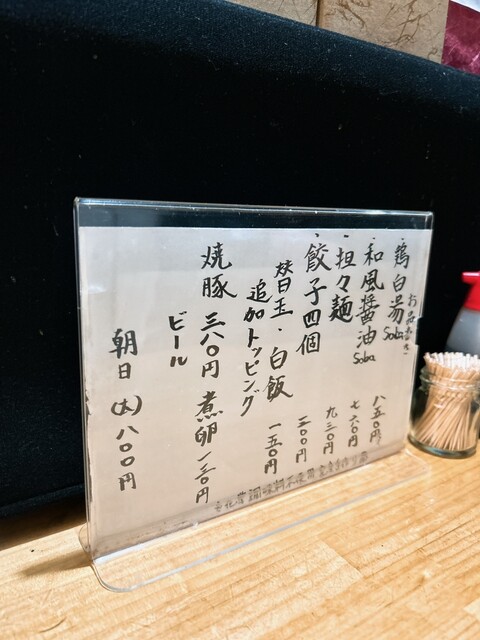 お品書き
・鶏白湯Soba 八五〇円
・和風醤油Soba 七六〇円
・担々麺 九三〇円
・餃子四個 三〇〇円
替玉・白飯 一五〇円
追加トッピング
焼豚 三八〇円 煮卵 一三〇円
ビール
朝日 (大) 八〇〇円